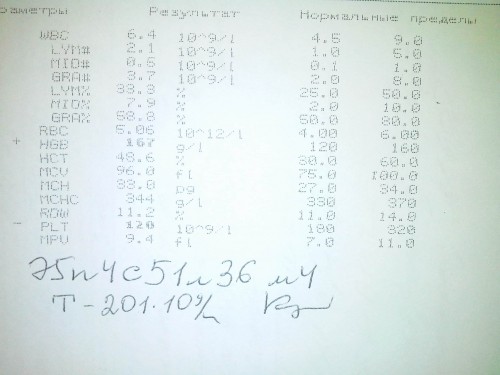 раметры Результат Нормальные пределы
WBC 6.4 10^9/l 4.5 9.0
LYM# 2.1 10^9/l 1.0 5.0
MID# 0.5 10^9/l 0.1 1.0
GRA# 3.7 10^9/l 2.0 8.0
LYM% 33.3 % 25.0 50.0
MID% 7.9 % 2.0 10.0
GRA% 58.8 % 50.0 80.0
RBC 5.06 10^12/l 4.00 6.00
+ HGB 167 g/l 120 160
HCT 48.6 % 30.0 60.0
MCV 96.0 fl 75.0 100.0
MCH 33.0 pg 27.0 34.0
MCHC 344 g/l 330 370
RDW 11.2 % 11.0 14.0
- PLT 120 10^9/l 180 320
MPV 9.4 fl 7.0 11.0
Э5п4с51л36м4
Т-201·10⁹/л